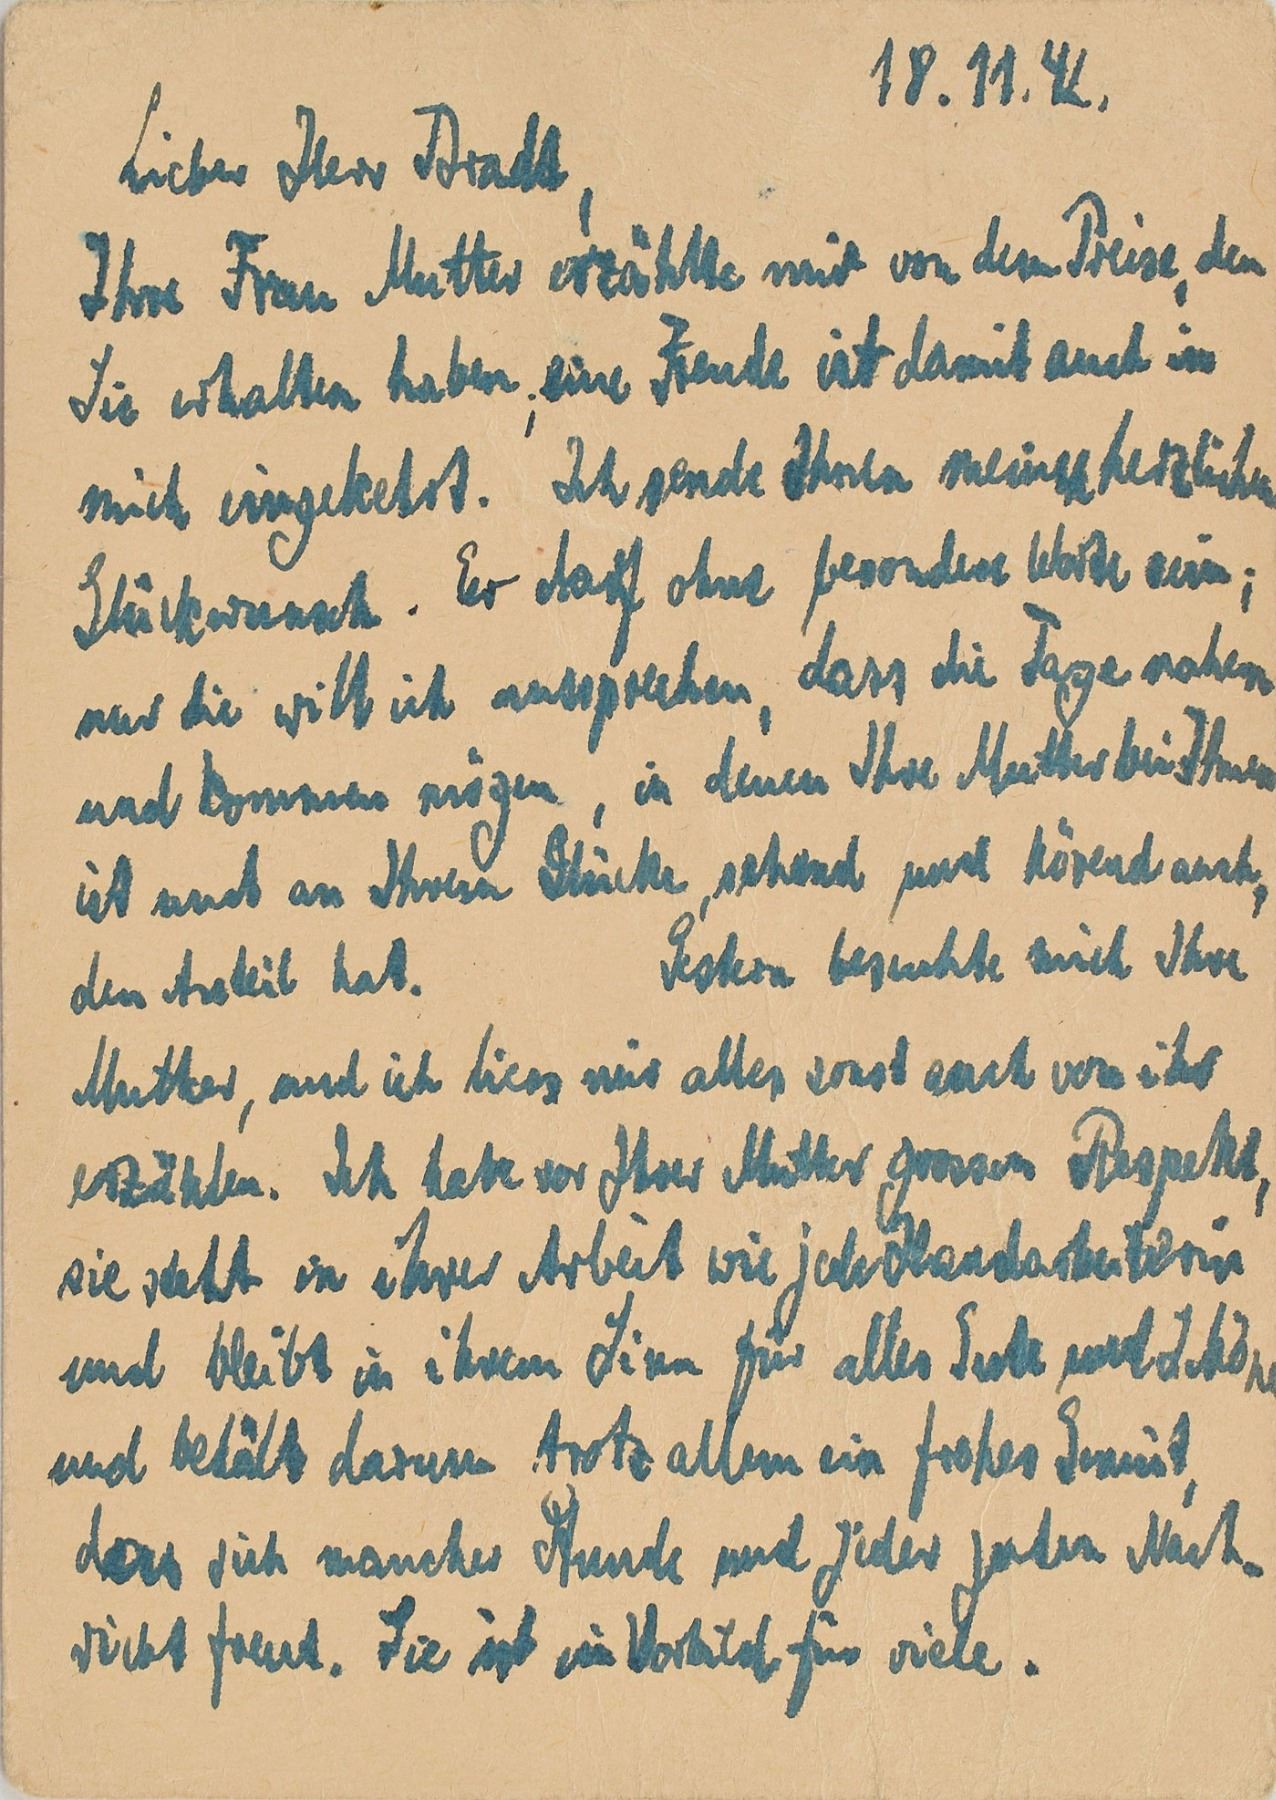 18.11.41.
Lieber Herr Bradt,
Ihre Frau Mutter erzählte mir von dem Preise, den
Sie erhalten haben; eine Freude ist damit auch in
mich eingekehrt. Ich sende Ihnen meinen herzlichen
Glückwunsch. Er darf ohne besondere Worte sein;
nur die will ich aussprechen, dass die Tage nahen
und kommen mögen, in denen Ihre Mutter bei Ihnen
ist und an Ihrem Glücke, sehend und hörend auch,
den Anteil hat. Gestern besuchte mich Ihre
Mutter, und ich liess mir alles sonst auch von ihr
erzählen. Ich habe vor Ihrer Mutter grossen Respekt,
sie steht in ihrer Arbeit wie jede Handarbeiterin
und bleibt in ihrem Sinn für alles Gute und Schöne
und behält darum trotz allem ein frohes Gemüt,
dass sich mancher Stunde und jeder guten Nach-
richt freut. Sie ist ein Vorbild für viele.